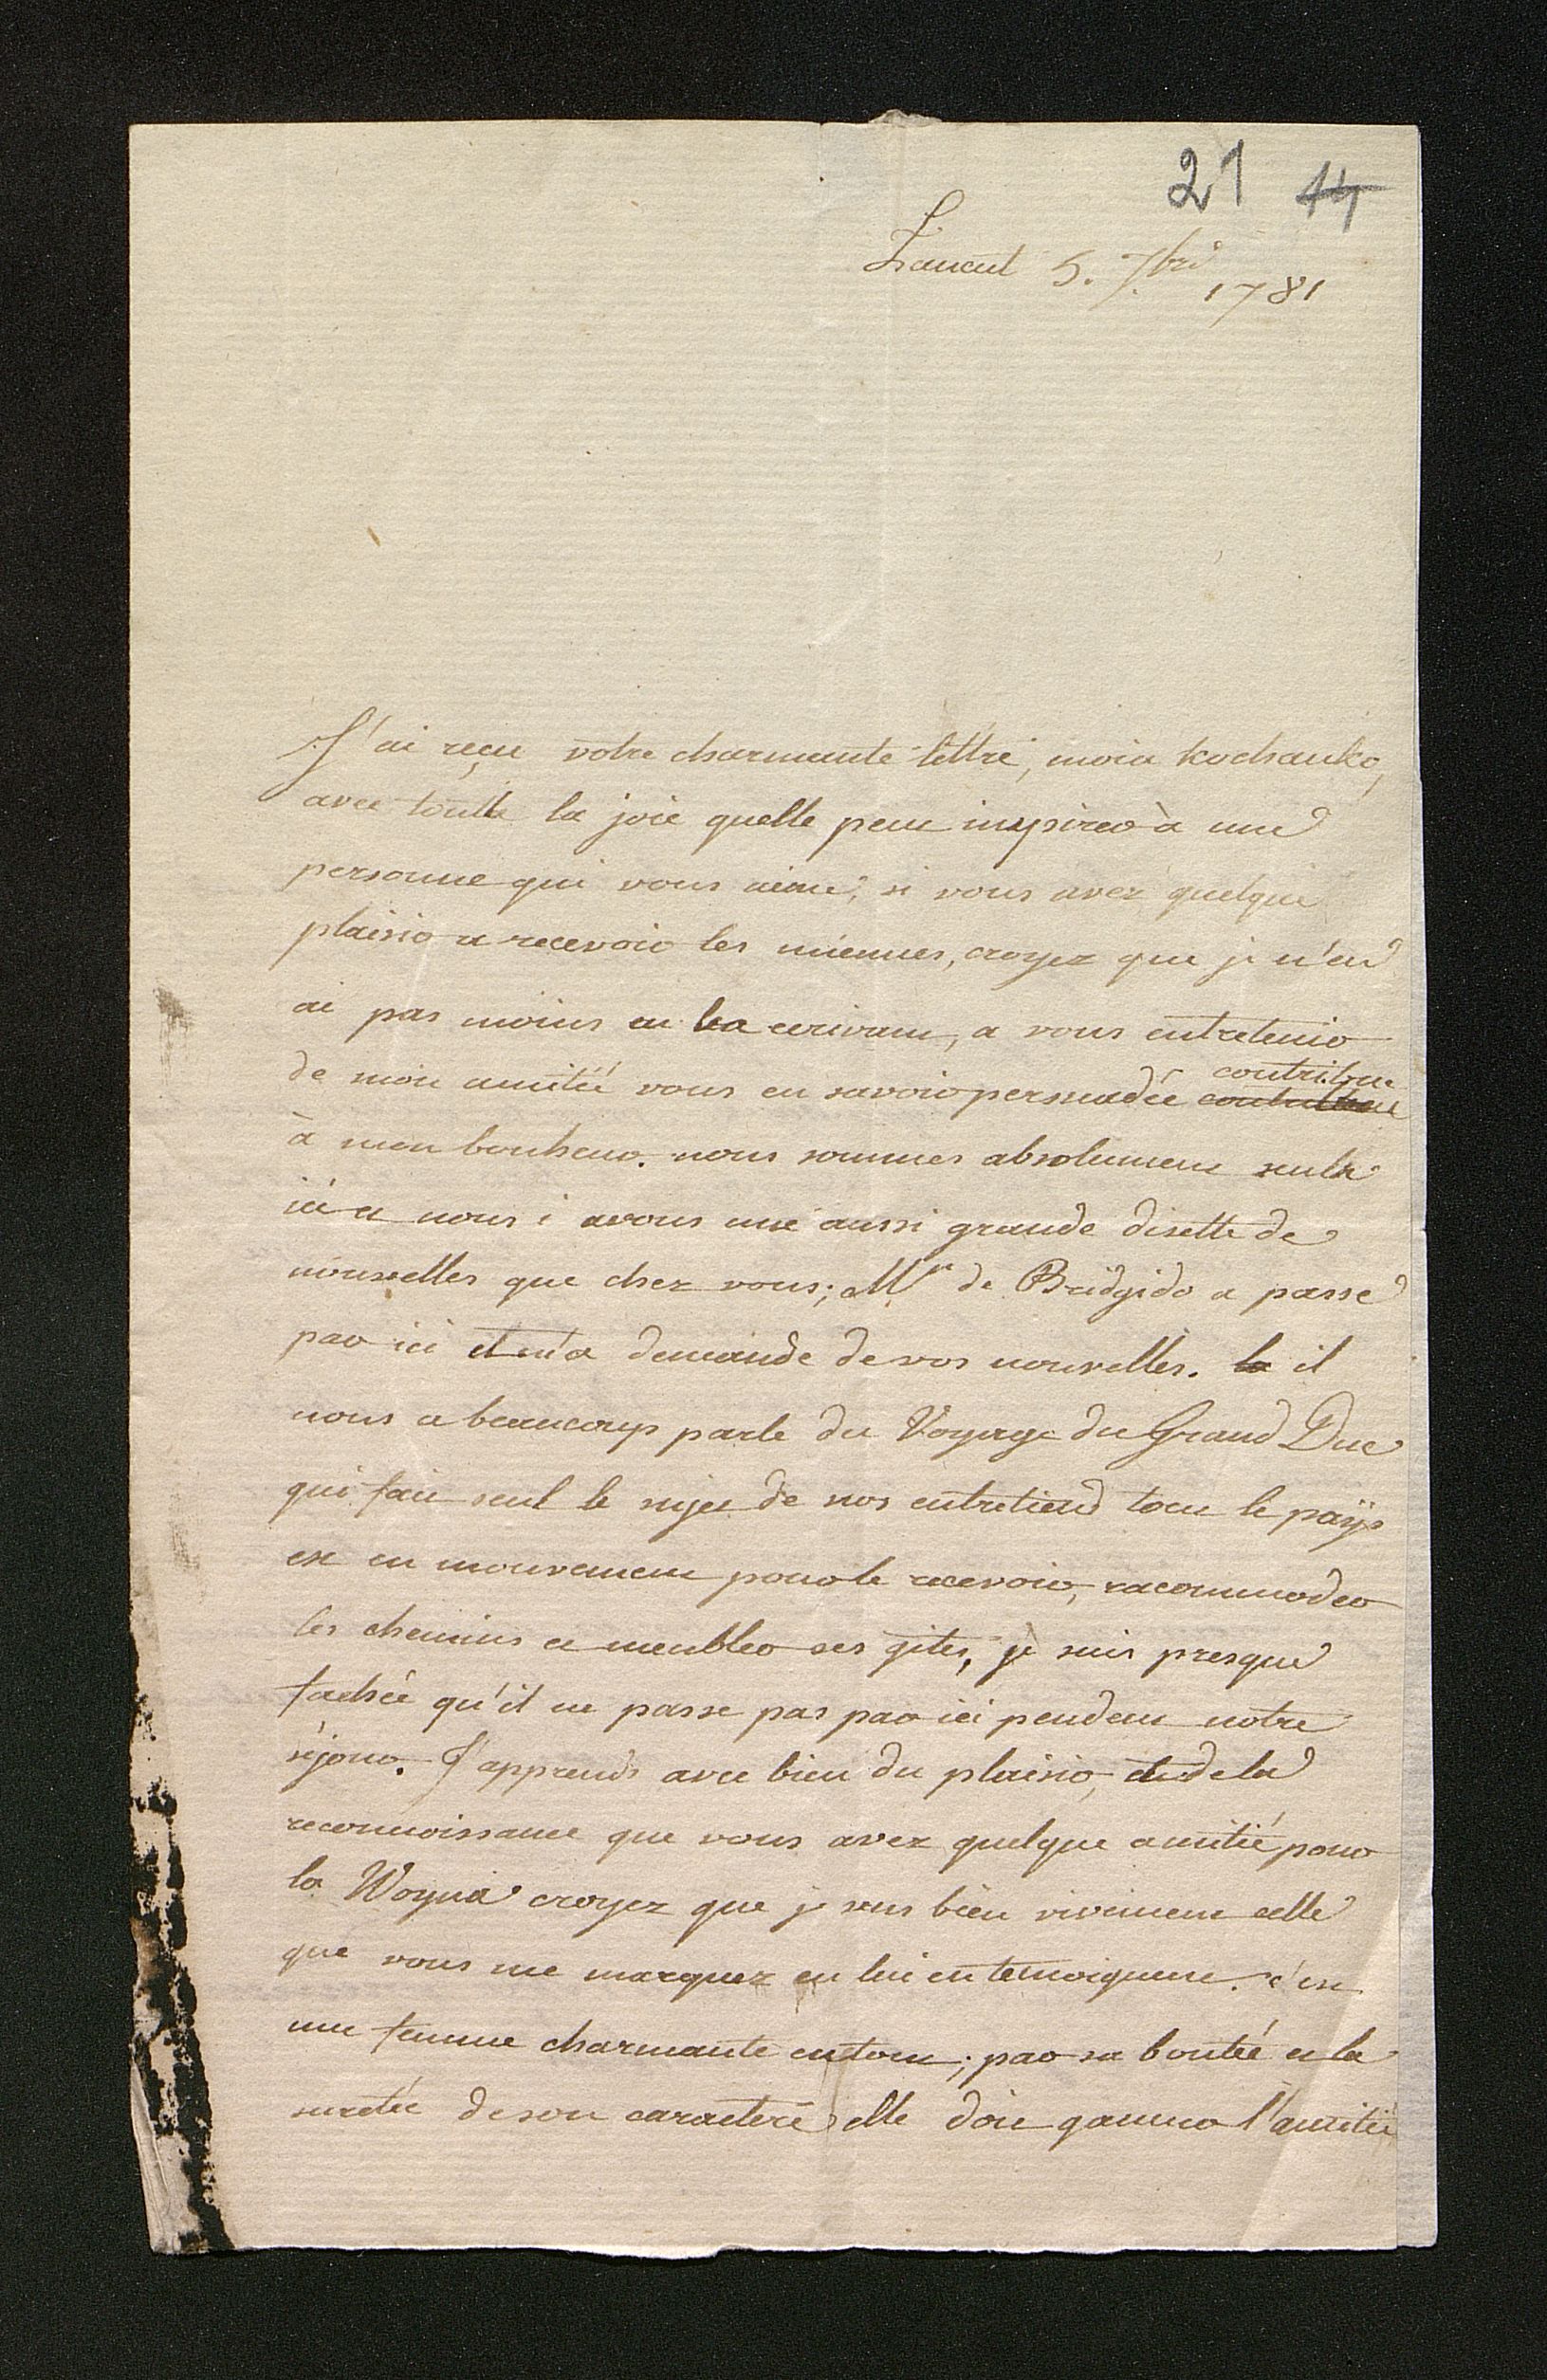 21 14
Lancut 5. 7bre 1781
J'ai reçu votre charmante lettre, moia kochanko,
avec toutte la joie quelle peut inspirer à une
personne qui vous aime, si vous avez quelque
plaisir a recevoir les miennes, croyez que je n'en
ai pas moins en les ecrivant, a vous entretenir
de mon amitié vous en savoir persuadée contribue
à mon bonheur. nous sommes absolument seuls
ici et nous i avons une aussi grande disette de
nouvelles que chez vous; Mr de Bridgido a passe
par ici et m'a demande de vos nouvelles. il
nous a beaucoup parle du Voyage du Grand Duc
qui fait seul le sujet de nos entretiens tout le païs
est en mouvement pour le recevoir, racommoder
les chemins et meubler ses gites, je suis presque
fachée qu'il ne passe pas par ici pendant notre
séjour. J'apprends avec bien du plaisir, et de la
reconnoissance que vous avez quelque amitié pour
la Woyna croyez que je sens bien vivement celle
que vous me marquez en lui en temoignant. c'est
une femme charmante en tout; par sa bonté et la
suretée de son caractere elle doit gagner l'amitié